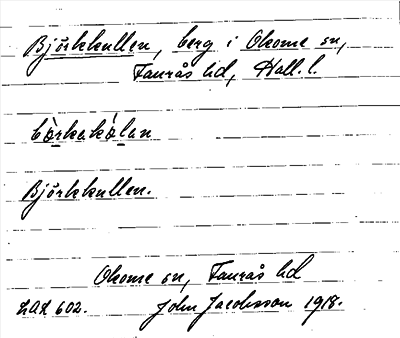 Björkkullen, berg i Okome sn,
Faurås hd, Hall. l.
bò̱rkakó̱lan
Björkkullen.
Okome sn, Faurås hd
LAL 602. John Jacobsson 1918.